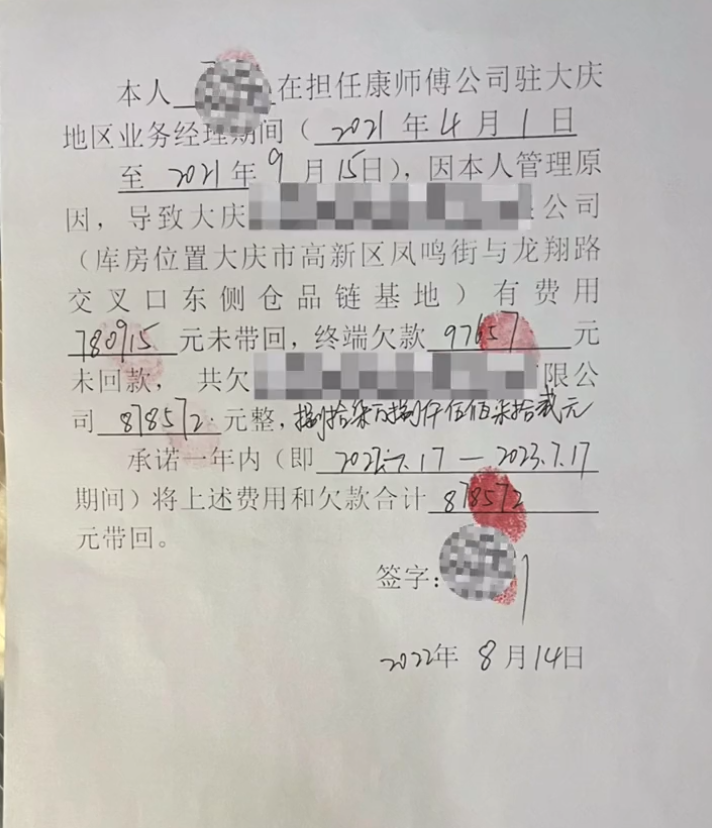 本人在担任康师傅公司驻大庆
地区业务经理期间（2021年4月1日
至2021年9月15日），因本人管理原
因，导致大庆公司
（库房位置大庆市高新区凤鸣街与龙翔路
交叉口东侧仓品链基地）有费用
780915元未带回，终端欠款97657元
未回款，共欠有限公
司878572.元整，捌拾柒万捌仟伍佰柒拾贰元
承诺一年内（即2022.7.17—2023.7.17
期间）将上述费用和欠款合计878572
元带回。
签字：
2022年8月14日